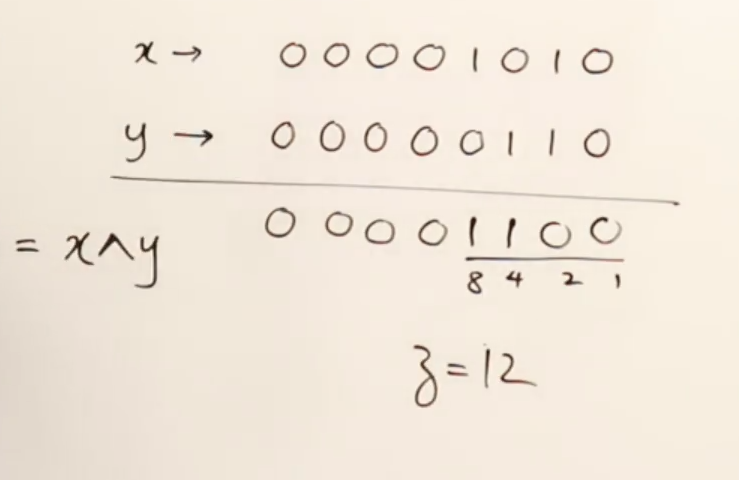 x → 0 0 0 0 1 0 1 0
y → 0 0 0 0 0 1 1 0
= x^y 0 0 0 0 1 1 0 0
8 4 2 1
z = 12